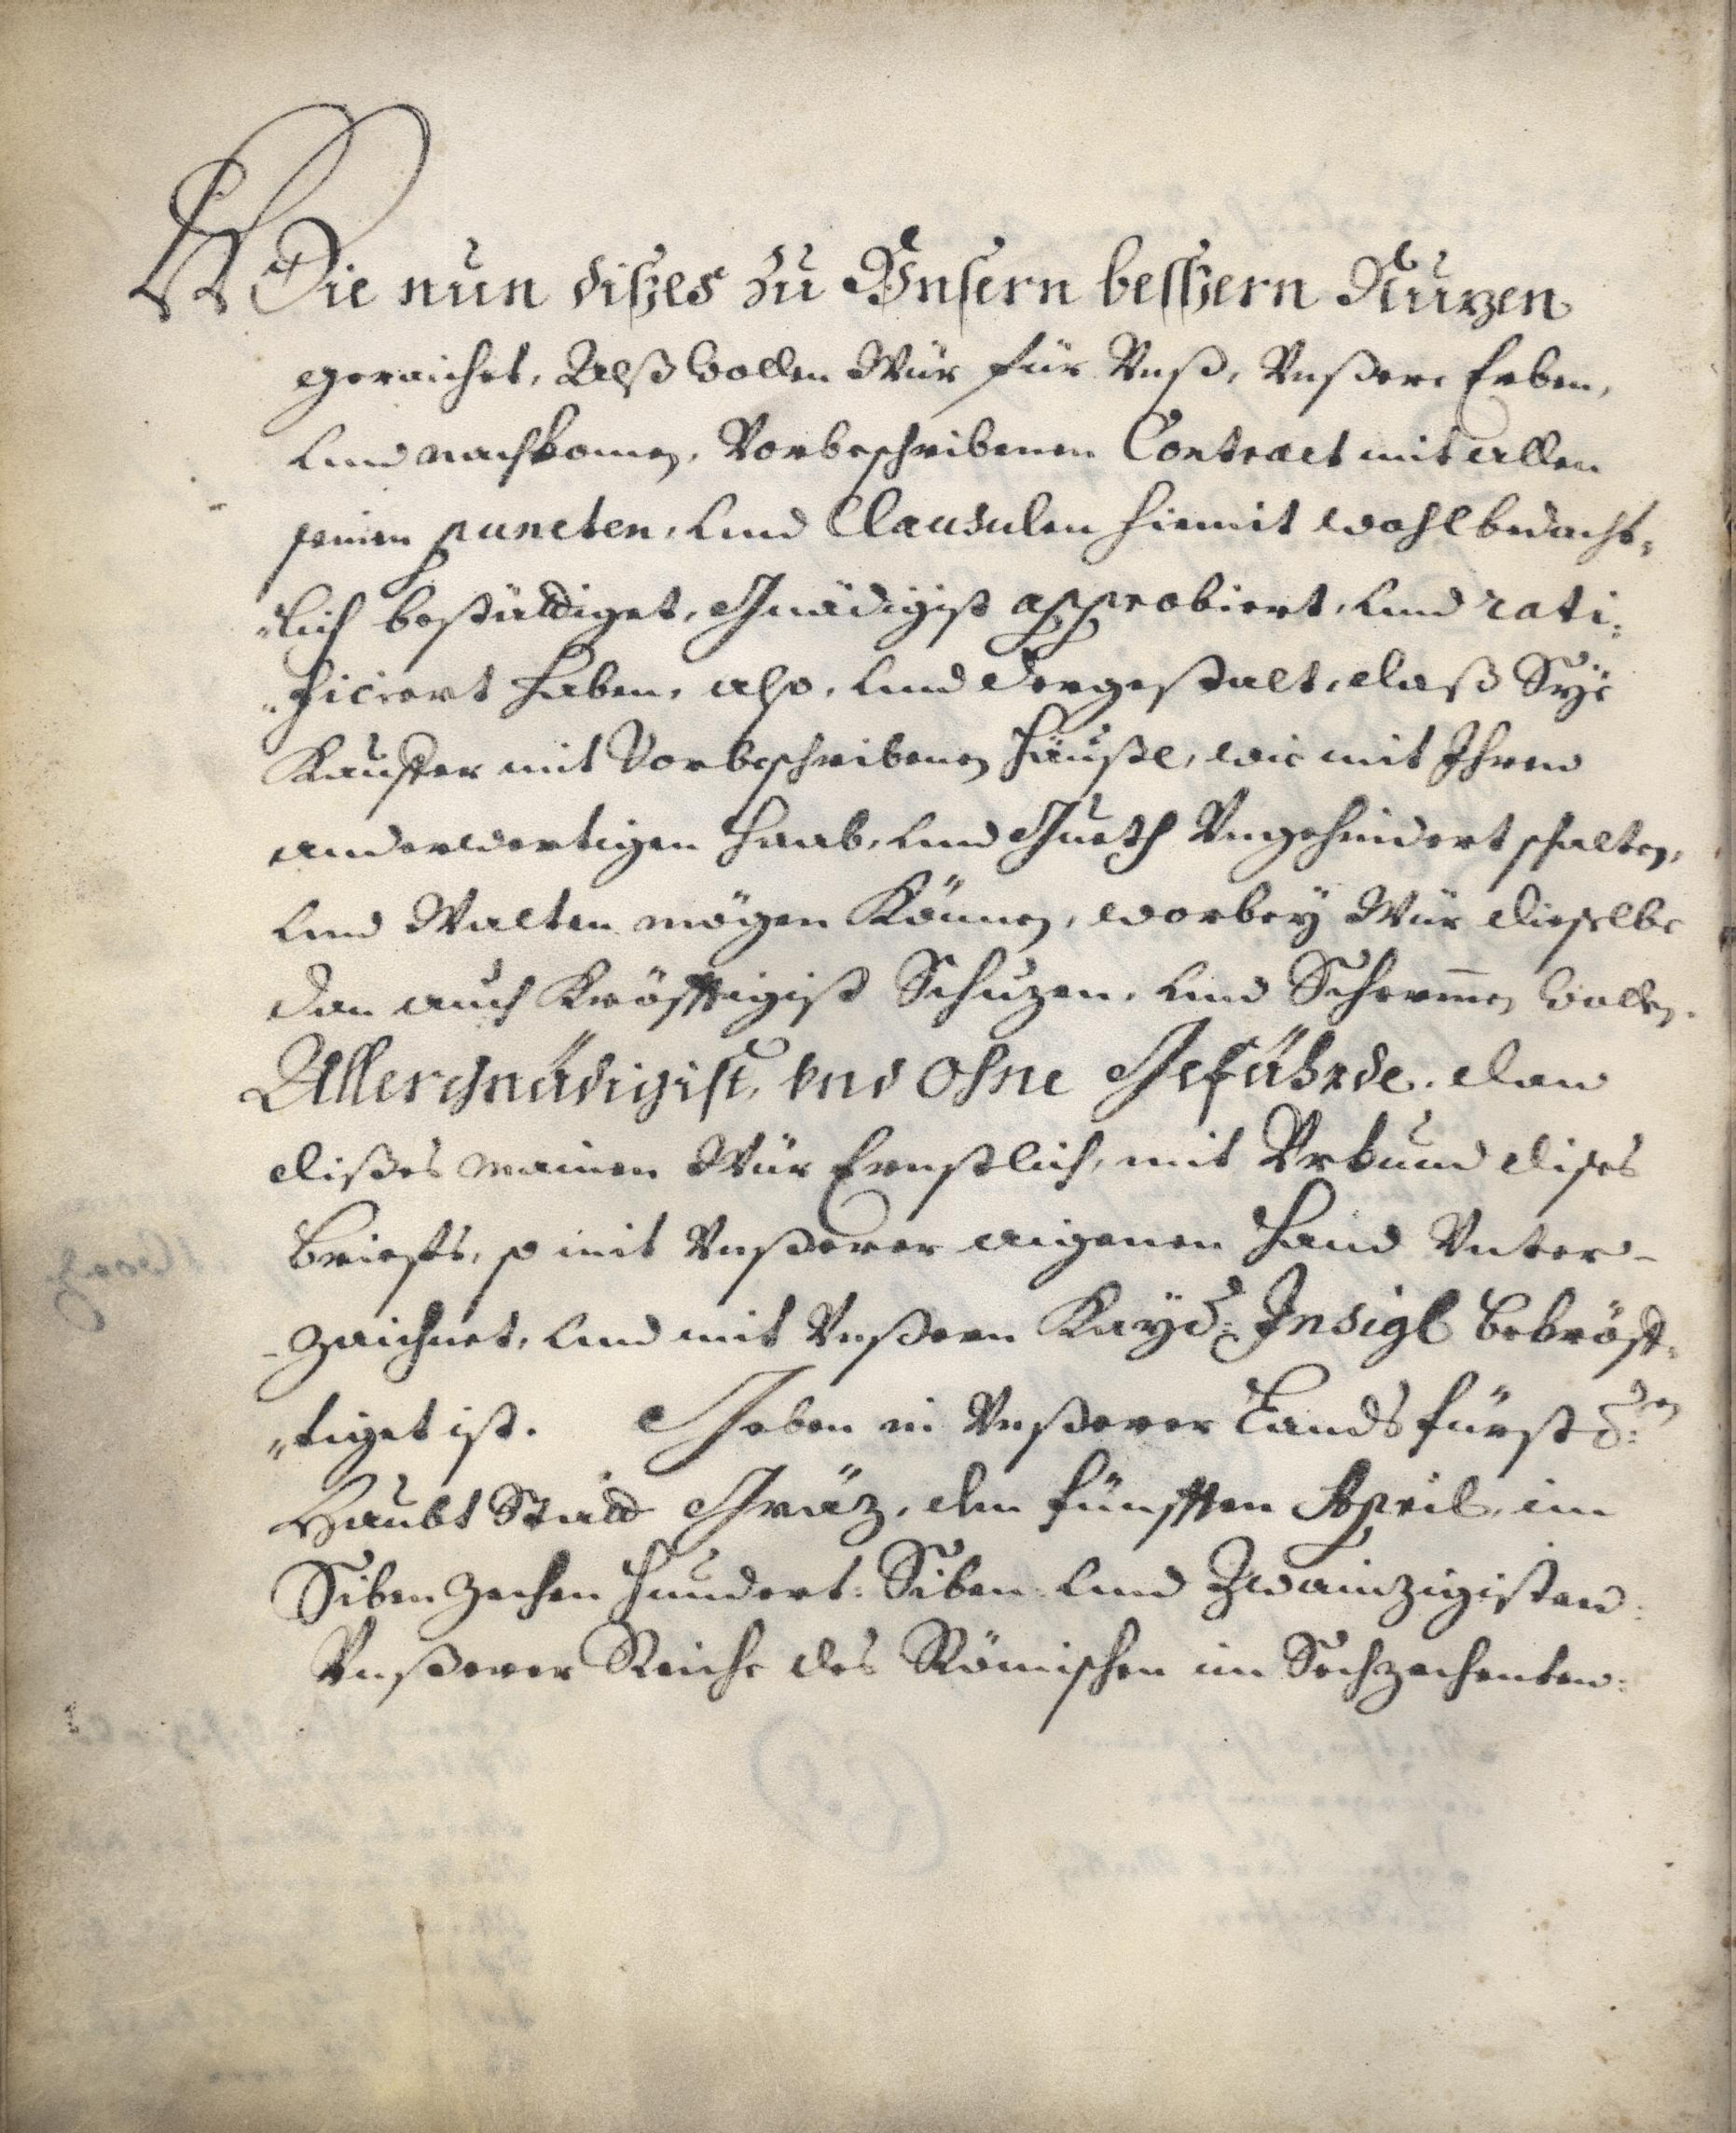 WDie nun dißes zu Vnsern bessern Nuzen
geraichet, Alß wollen Wür für Vnß, Vnßere Erben,
vnd nachkomen, Vorbeschribenen Contract mit allen
seinen puncten, vnd Clausulen hiemit wohlbedacht„
„lich bestättiget, Gnädigist approbiert, vnd rati„
„ficiert haben, also, vnd dergestalt, daß Sye
Kauffer mit Vorbeschribenen Häußl, wie mit Ihren
anderwertigen Haab, vnd Gueth Vngehindert schalten,
vnd Walten mögen Können, worbey Wür dieselbe
dan auch Kröfftigist Schuzen, vnd Schermen wollen.
Allergnädigist, vnd ohne Gefährde. dan
dißes mainen Wür Ernstlich, mit Vrkund dises
brieffs, so mit Vnßerer aigenen Hand Vnter-
-zaichnet, vnd mit Vnßern Kayl: Insigl bekröff„
„tiget ist. Geben in Vnßerer Landsfürstl:en
Haubt Statt Gräz, den fünfften April, im
Sibenzechen hundert: Siben vnd Zwainzigisten:
Vnßerer Reiche des Römischen im Sechzechenten: